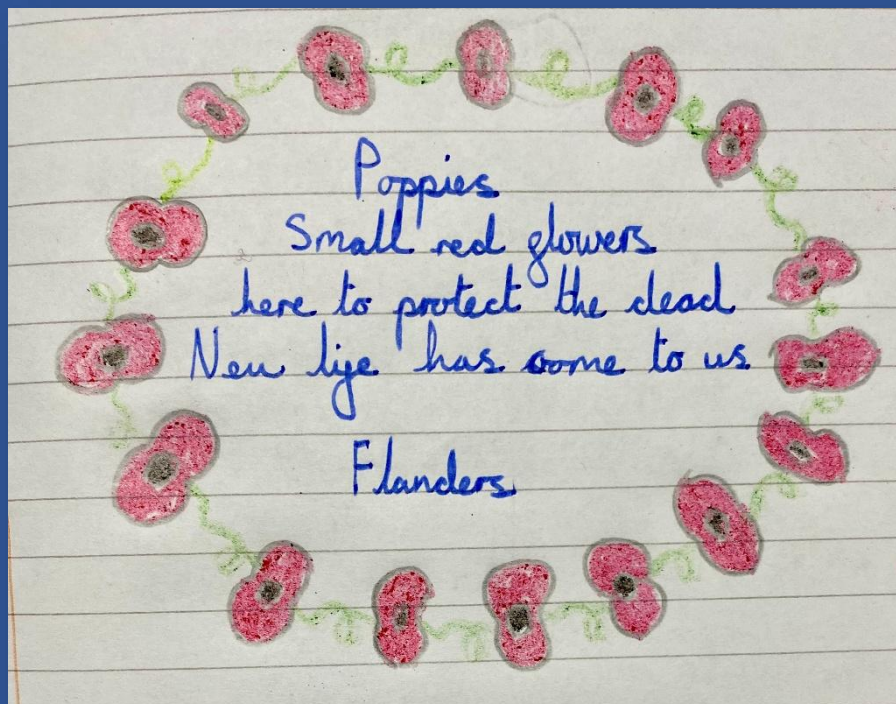 Poppies
Small red flowers
here to protect the dead
New life has come to us
Flanders